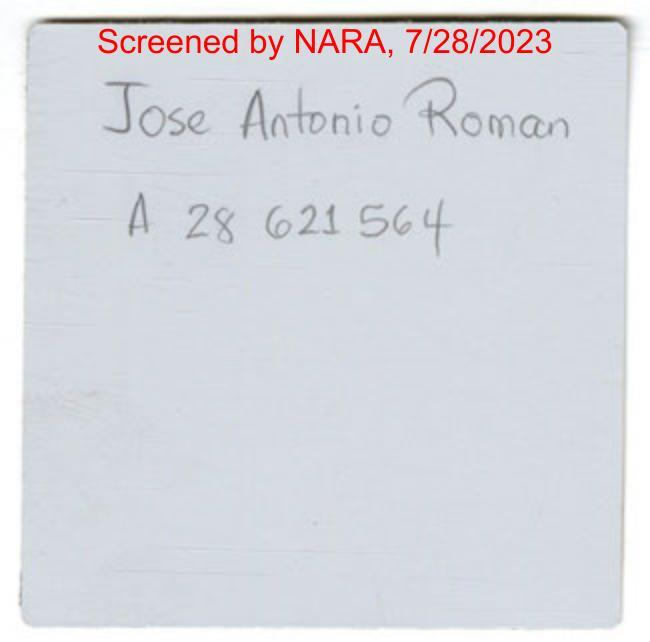 Screened by NARA, 7/28/2023
Jose Antonio Roman
A 28 621 564